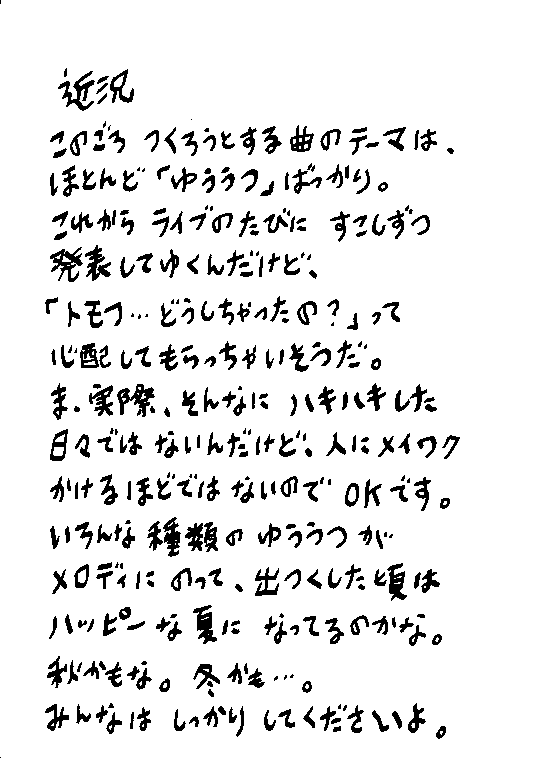 近況
このごろ つくろうとする曲のテーマは、
ほとんど「ゆううつ」ばっかり。
これから ライブのたびに すこしずつ
発表してゆくんだけど、
「トモフ…どうしちゃったの?」って
心配してもらっちゃいそうだ。
ま、実際、そんなに ハキハキした
日々では ないんだけど、人にメイワク
かけるほどでは ないので OKです。
いろんな 種類の ゆううつ が
メロディに のって、出つくした頃は
ハッピーな 夏に なってるのかな。
秋かもな。 冬かも…。
みんなは しっかり してくださいよ。